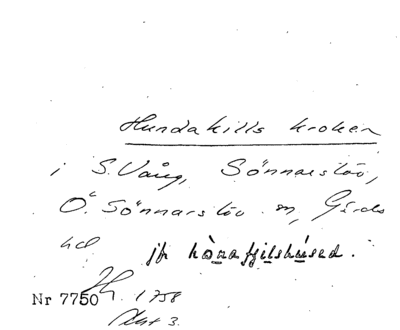 Hundakills kroken
i S. Vång, Sönnarslöv,
Ö. Sönnarslöv sn, Gärds
hd jfr hònafjilshúsed.
Nr 7750 1758